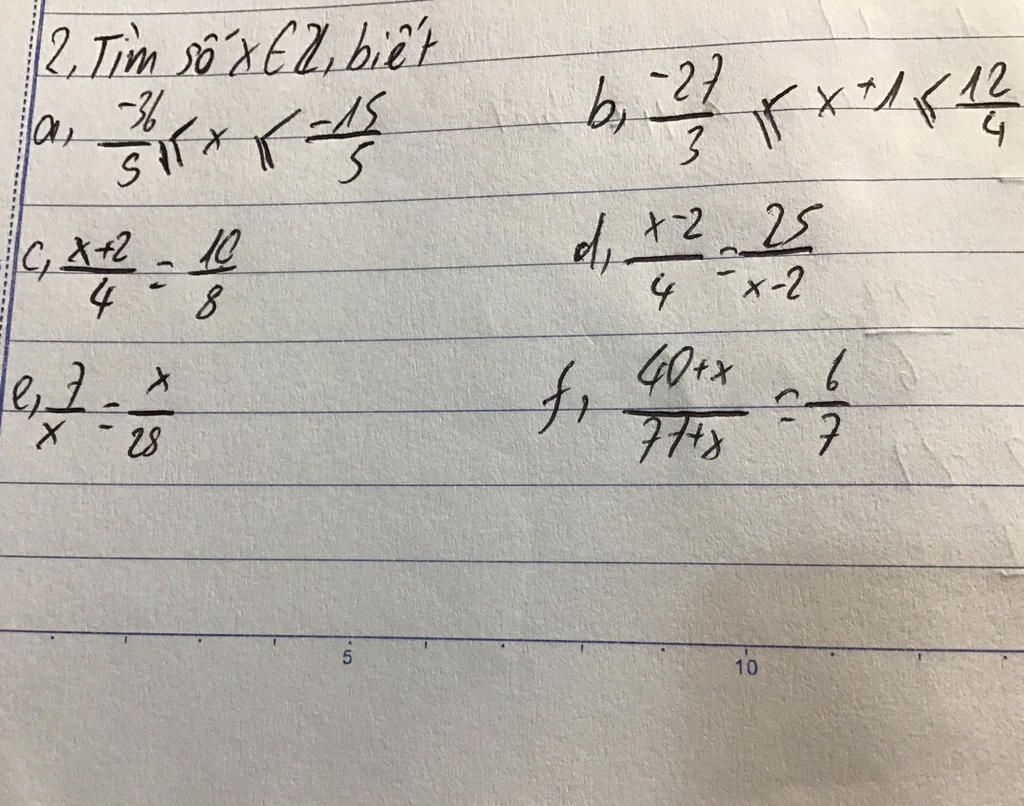 2, Tìm số x ∈ Z, biết
a, -36/5 ≤ x ≤ -15/5 b, -27/3 ≤ x+1 ≤ 12/4
c, x+2/4 = 10/8 d, x-2/4 = 25/x-2
e, 7/x = x/28 f, 40+x/77+x = 6/7
5 10